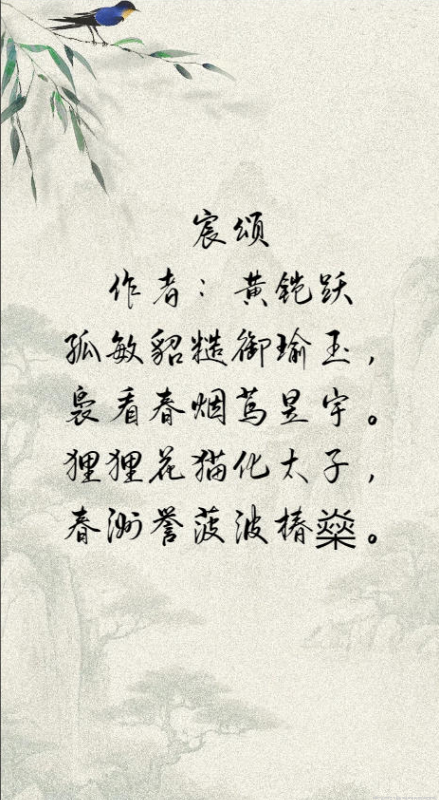 宸颂
作者：黄铠跃
孤敏貂糙御瑜玉，
裊看春烟茑昱宇。
狸狸花猫化太子，
春渊誉菠波椿燊。